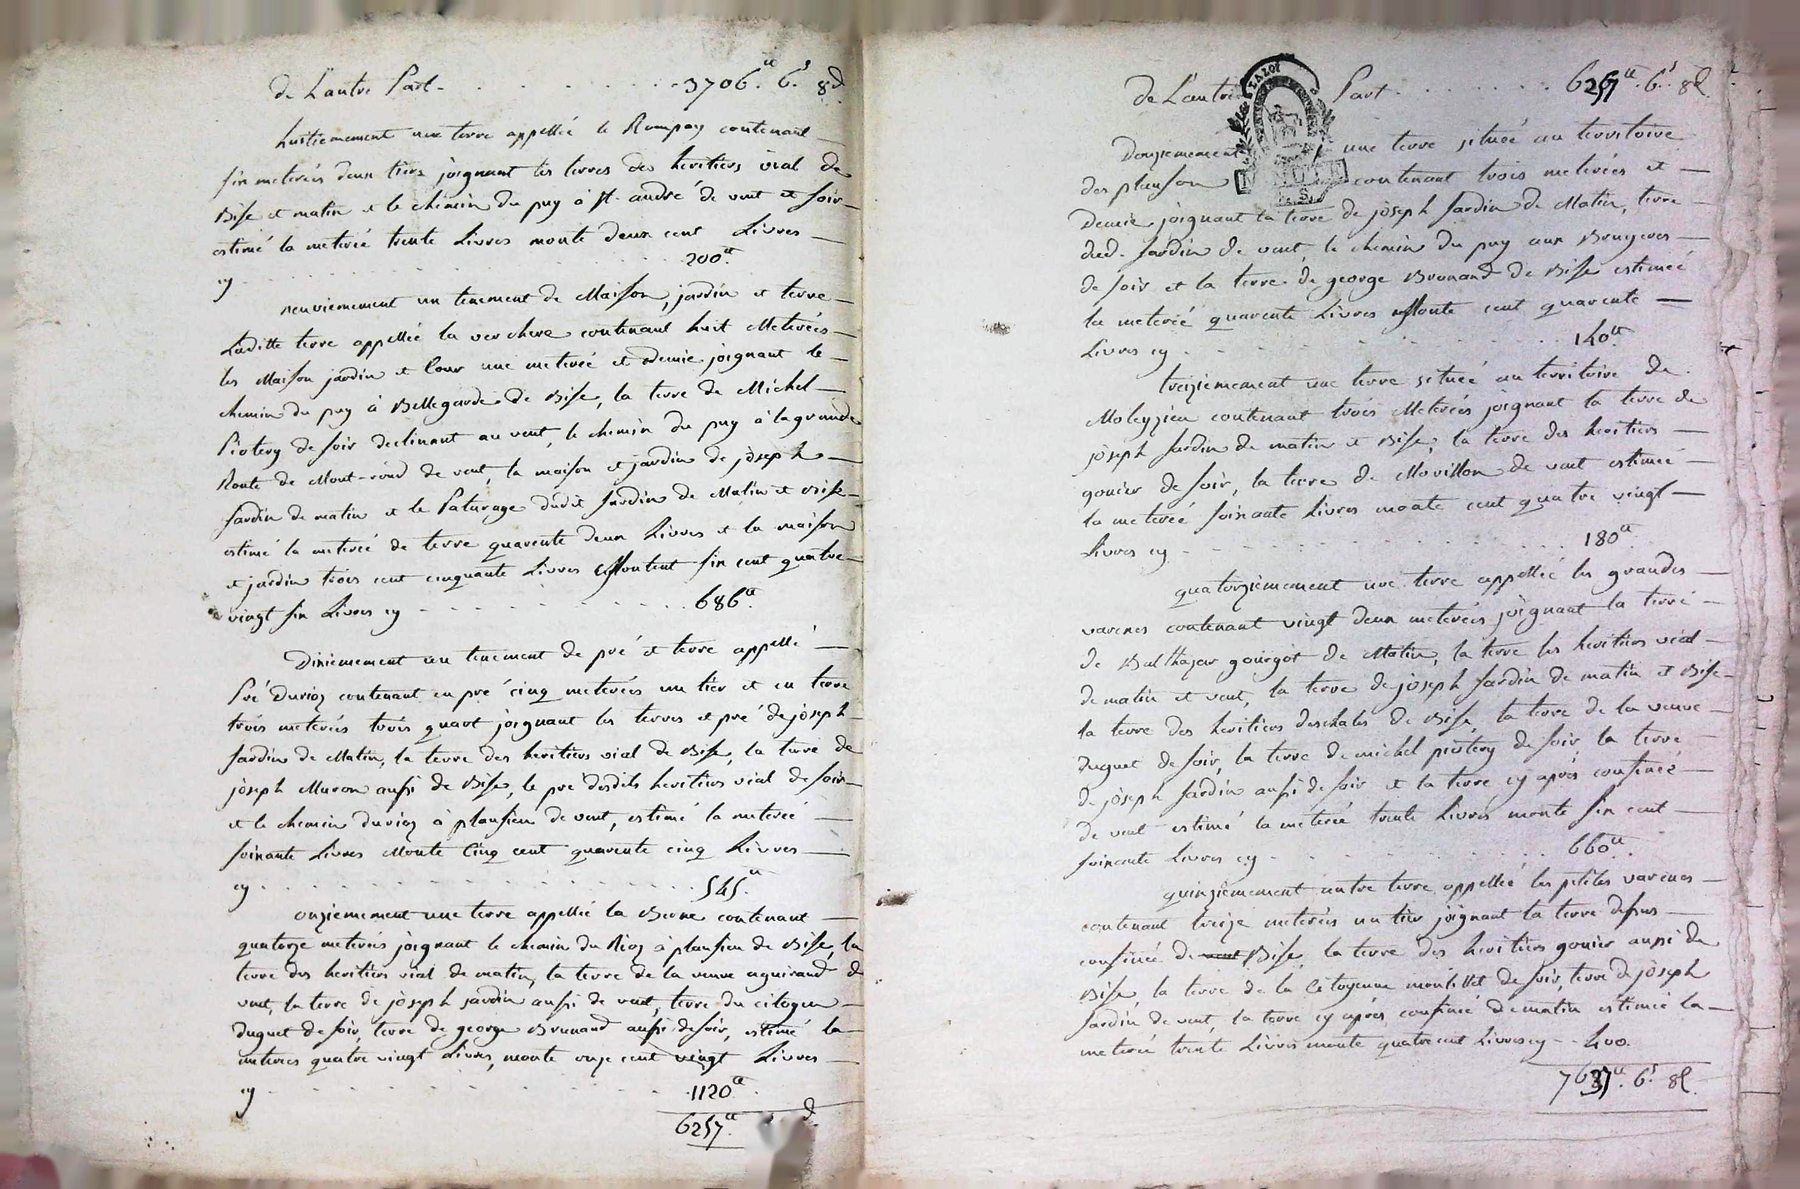 de Lautre Part . . . . . . . 3706.tt 6.s 8d
huitiemement une terre appellée le Rompay contenant
six meterées deux tiers joignant les terres des heritiers vial de
Bise et matin et le chemin du puy à St. andré de vent et soir
estimé la meterée trente Livres monte deux cent Livres
cy . . . . . . . 200tt
neuviemement un tenement de Maison, jardin et terre
Laditte terre appellée la verchere contenant huit Meterées
les Maison jardin et Cour une meterée et demie joignant le
chemin du puy à Bellegarde de Bise, la terre de Michel
Piotery de soir declinant au vent, le chemin du puy à la grande
Route de Mont-rond de vent, la maison et jardin de jòseph
Jardin de matin et le Paturage dudit Jardin de Matin et Bise
estimé la meterée de terre quarente deux Livres et la maison
et jardin trois cent cinquante Livres Montent six cent quatre
vingt six Livres cy . . . . . . . 686tt.
Dixiemement un tenement de pré et terre appellé
Pré Durioz contenant en pré cinq meterées un tier et en terre
trois meterées trois quart joignant les terres et pré de jòseph
Jardin de Matin, la terre des heritiers vial de Bise, la terre de
jòseph Muron aussi de Bise, le pré desdits heritiers vial de soir
et le chemin durioz à plansieu de vent, estimé la meterée
soixante Livres Monte Cinq cent quarente cinq Livres
cy . . . . . . . 545.tt
onziemement une terre appellée la Berne contenant
quatorze meterées joignant le chemin du Rioz à plansieu de Bise, la
terre des heritiers vial de matin, la terre de la veuve aguiraud de
vent, la terre de jòseph jardin aussi de vent, terre du citoyen
duguet de soir, terre de george Brunand aussi de soir, estimé la
meterée quatre vingt Livres, monte onze cent vingt Livres
cy . . . . . . . 1120tt
6257.tt d
de Lautre Part . . . . . . . 6257.tt 6.s 8d
Douziemement une terre située au territoire
des planson contenant trois meterées et
Demie joignant la terre de jòseph Jardin de Matin, terre
dud. Jardin de vent, le chemin du puy aux Bruyeres
de soir et la terre de george Brunand de Bise estimée
la meterée quarente Livres Monte cent quarente
Livres cy . . . . . . . 140tt
treiziemement une terre située au territoire de
Moleyzieu contenant trois Meterées joignant la terre de
jòseph Jardin de matin et Bise, la terre des heritiers
gonier de soir, la terre de Movillon de vent estimée
la meterée soixante Livres monte cent quatre vingt
Livres cy . . . . . . . 180tt
quatorziemement une terre appellée les grandes
varenes contenant vingt deux meterées joignant la terre
de Balthazar gourgot de Matin, la terre les heritiers vial
de matin et vent, la terre de jòseph Jardin de matin et Bise
la terre des heritiers deschales de Bise, la terre de la veuve
duguet de soir, la terre de michel piotery de soir, la terre
de jòseph Jardin aussi de soir et la terre cy après confinée
de vent estimé la meterée trente Livres monte six cent
soixante Livres cy . . . . . . . 660tt.
quinziemement autre terre appellée les petites varenes
contenant treize meterées un tier joignant la terre dessus
confinée de vent Bise, la terre des heritiers gonier aussi de
Bise, la terre de la Citoyenne montillet de soir, terre de jòseph
Jardin de vent, la terre cy après confiné de matin estimée la
meterée trente Livres monte quatre cent Livres cy . . 400
7637tt. 6.s 8d.